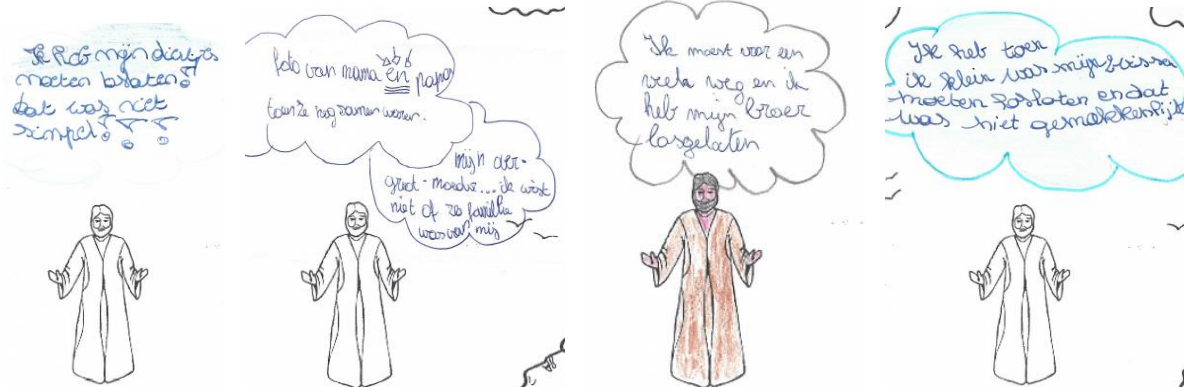 Ik heb mijn
moeten loslaten
dat was niet
simpel
foto van mama en papa
toen ze nog samen waren.
mijn over-
groot-moeder... ik wist
niet of ze familie
was van mij
Ik moest voor een
week weg en ik
heb mijn broer
losgelaten
Ik heb toen
ik klein was mijn
moeten losloten en dat
was niet gemakkelijk